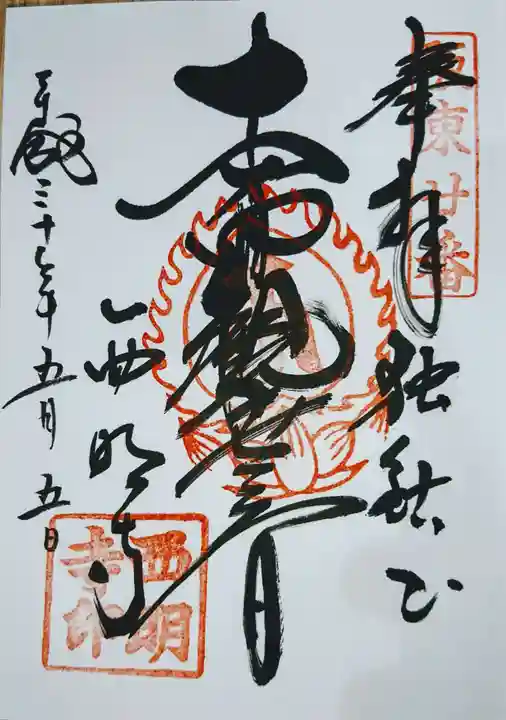 坂東廿番
奉拝 独鈷山
十一面観世音
西明寺
西明寺印
平成三十年五月五日